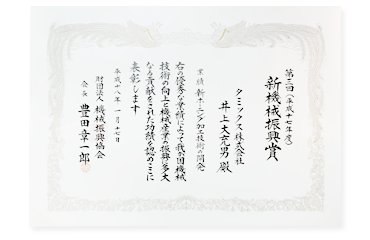 第三回(平成十七年度)
新機械振興賞
タミックス株式会社
井上大克男殿
業績 新ホーニング加工技術の開発
右の優秀な業績によって我が国機械
技術の向上と機械産業の振興に多大
なる貢献をされた功績を認めここに
表彰します
平成十八年一月十七日
財団法人機械振興協会
会長 豊田章一郎